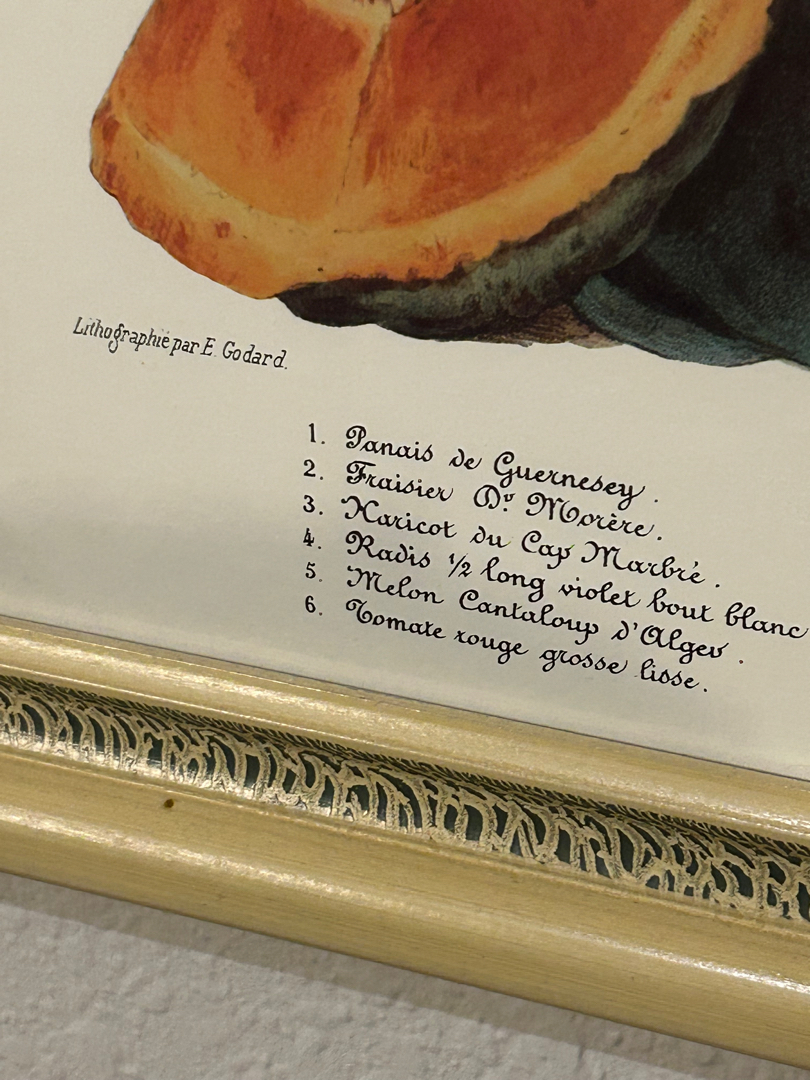 Lithographie par E. Godard.
1. Panais de Guernesey.
2. Fraisier Dr. Morère.
3. Haricot du Cap Marbré.
4. Radis 1/2 long violet bout blanc
5. Melon Cantaloup d'Alger.
6. Tomate rouge grosse lisse.